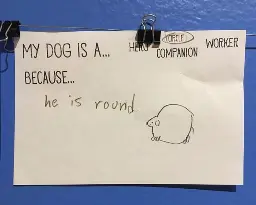 MY DOG IS A... HERO COMPANION WORKER
BECAUSE...
he is round